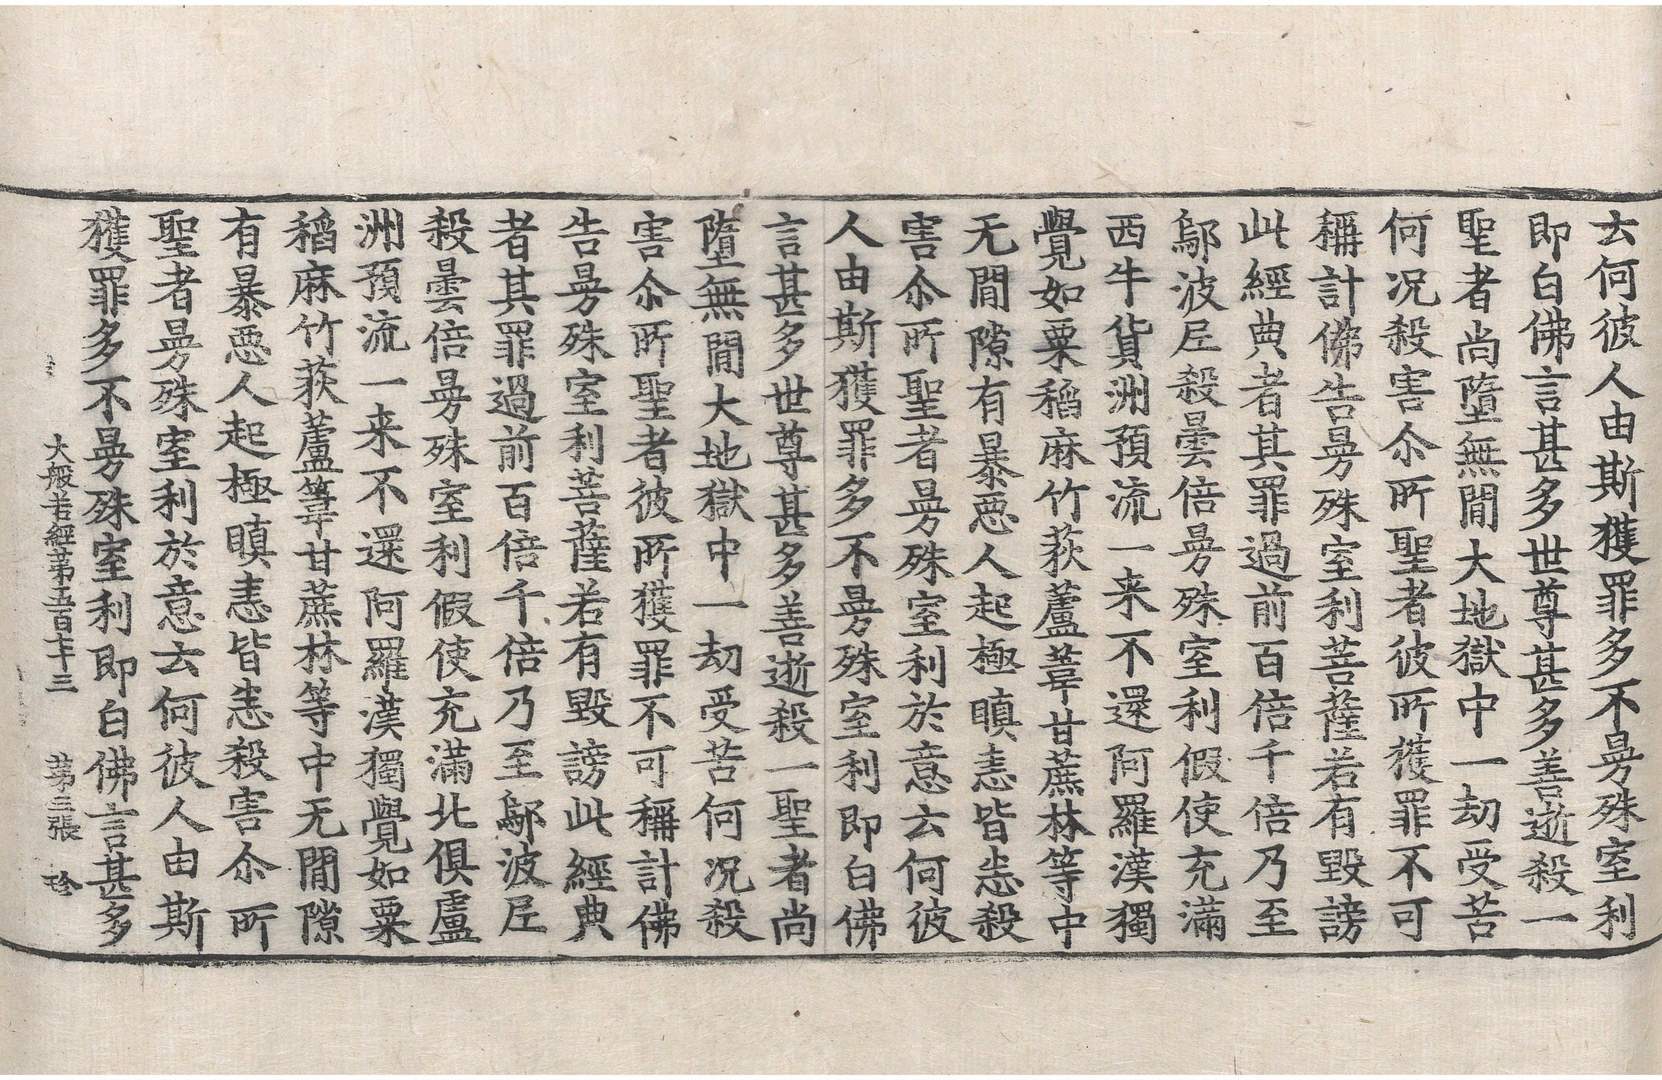 云何彼人由斯獲罪多不曼殊室利
即白佛言甚多世尊甚多善逝殺一
聖者尚墮無閒大地獄中一劫受苦
何况殺害尒所聖者彼所獲罪不可
稱計佛告曼殊室利菩薩若有毀謗
此經典者其罪過前百倍千倍乃至
鄔波尼殺曇倍曼殊室利假使充滿
西牛貨洲預流一来不還阿羅漢獨
覺如粟稻麻竹荻蘆葦甘蔗林等中
无閒隙有暴悪人起極瞋恚皆悉殺
害尒所聖者曼殊室利於意云何彼
人由斯獲罪多不曼殊室利即白佛
言甚多世尊甚多善逝殺一聖者尚
墮無閒大地獄中一劫受苦何况殺
害尒所聖者彼所獲罪不可稱計佛
告曼殊室利菩薩若有毀謗此經典
者其罪過前百倍千倍乃至鄔波尼
殺曇倍曼殊室利假使充滿北俱盧
洲預流一来不還阿羅漢獨覺如粟
稻麻竹荻蘆葦甘蔗林等中无閒隙
有暴悪人起極瞋恚皆悉殺害尒所
聖者曼殊室利於意云何彼人由斯
獲罪多不曼殊室利即白佛言甚多
大般若經苐五百七十三 苐三張 珍